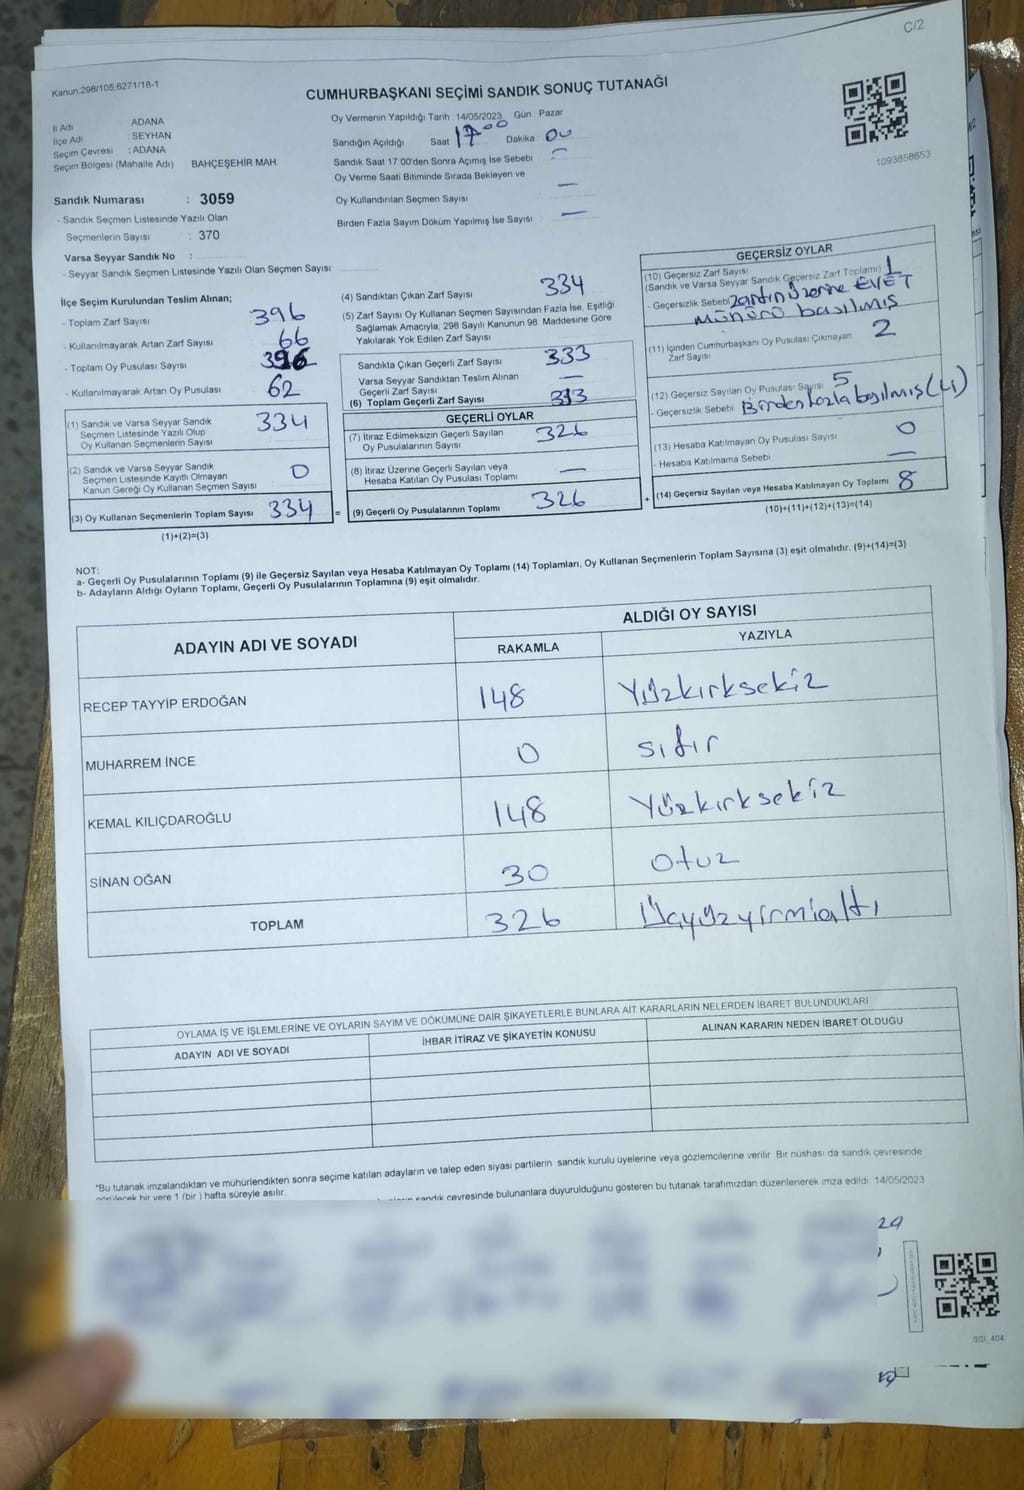 C/2
Kanun 298/105,6271/18-1
CUMHURBAŞKANI SEÇİMİ SANDIK SONUÇ TUTANAĞI
İl Adı ADANA
İlçe Adı : SEYHAN
Seçim Çevresi : ADANA
Seçim Bölgesi (Mahalle Adı) BAHÇEŞEHİR MAH.
Sandık Numarası : 3059
- Sandık Seçmen Listesinde Yazılı Olan
Seçmenlerin Sayısı : 370
Varsa Seyyar Sandık No :
- Seyyar Sandık Seçmen Listesinde Yazılı Olan Seçmen Sayısı
Oy Vermenin Yapıldığı Tarih 14/05/2023 Gün Pazar
Sandığın Açıldığı Saat 17:00 Dakika 00
Sandık Saat 17 00'den Sonra Açımış İse Sebebi -
Oy Verme Saati Bitiminde Sırada Bekleyen ve
Oy Kullandırılan Seçmen Sayısı —
Birden Fazla Sayım Döküm Yapılmış İse Sayısı —
1093858653
İlçe Seçim Kurulundan Teslim Alınan;
- Toplam Zarf Sayısı 396
- Kullanılmayarak Artan Zarf Sayısı 66
- Toplam Oy Pusulası Sayısı 396
- Kullanılmayarak Artan Oy Pusulası 62
(1) Sandık ve Varsa Seyyar Sandık
Seçmen Listesinde Yazılı Olup
Oy Kullanan Seçmenlerin Sayısı 334
(2) Sandık ve Varsa Seyyar Sandık
Seçmen Listesinde Kayıtlı Olmayan
Kanun Gereği Oy Kullanan Seçmen Sayısı 0
(3) Oy Kullanan Seçmenlerin Toplam Sayısı 334 =
(1)+(2)=(3)
(4) Sandıktan Çıkan Zarf Sayısı 334
(5) Zarf Sayısı Oy Kullanan Seçmen Sayısından Fazla İse, Eşitliği
Sağlamak Amacıyla; 298 Sayılı Kanunun 98 Maddesine Göre
Yakılarak Yok Edilen Zarf Sayısı
Sandıkta Çıkan Geçerli Zarf Sayısı 333
Varsa Seyyar Sandıktan Teslim Alınan
Geçerli Zarf Sayısı —
(6) Toplam Geçerli Zarf Sayısı 333
GEÇERLİ OYLAR
(7) İtiraz Edilmeksizin Geçerli Sayılan
Oy Pusulalarının Sayısı 326
(8) İtiraz Üzerine Geçerli Sayılan veya
Hesaba Katılan Oy Pusulası Toplamı —
(9) Geçerli Oy Pusulalarının Toplamı 326 +
GEÇERSİZ OYLAR
(10) Geçersiz Zarf Sayısı
(Sandık ve Varsa Seyyar Sandık Geçersiz Zarf Toplamı) 1
- Geçersizlik Sebebi zarfın üzerine EVET
mührü basılmış
(11) İçinden Cumhurbaşkanı Oy Pusulası Çıkmayan
Zarf Sayısı 2
(12) Geçersiz Sayılan Oy Pusulası Sayısı 5
- Geçersizlik Sebebi Birden fazla basılmış (4)
(13) Hesaba Katılmayan Oy Pusulası Sayısı 0
- Hesaba Katılmama Sebebi —
(14) Geçersiz Sayılan veya Hesaba Katılmayan Oy Toplamı 8
(10)+(11)+(12)+(13)=(14)
NOT:
a- Geçerli Oy Pusulalarının Toplamı (9) ile Geçersiz Sayılan veya Hesaba Katılmayan Oy Toplamı (14) Toplamları, Oy Kullanan Seçmenlerin Toplam Sayısına (3) eşit olmalıdır. (9)+(14)=(3)
b- Adayların Aldığı Oyların Toplamı, Geçerli Oy Pusulalarının Toplamına (9) eşit olmalıdır.
ADAYIN ADI VE SOYADI ALDIĞI OY SAYISI
RAKAMLA YAZIYLA
RECEP TAYYİP ERDOĞAN 148 Yüzkırksekiz
MUHARREM İNCE 0 sıfır
KEMAL KILIÇDAROĞLU 148 Yüzkırksekiz
SİNAN OĞAN 30 otuz
TOPLAM 326 Üçyüzyirmialtı
OYLAMA İŞ VE İŞLEMLERİNE VE OYLARIN SAYIM VE DÖKÜMÜNE DAİR ŞİKAYETLERLE BUNLARA AİT KARARLARIN NELERDEN İBARET BULUNDUKLARI
ADAYIN ADI VE SOYADI İHBAR İTİRAZ VE ŞİKAYETİN KONUSU ALINAN KARARIN NEDEN İBARET OLDUĞU
*Bu tutanak imzalandıktan ve mühürlendikten sonra seçime katılan adayların ve talep eden siyasi partilerin sandık kurulu üyelerine veya gözlemcilerine verilir. Bir nüshası da sandık çevresinde
görülecek bir yere 1 (bir ) hafta süreyle asılır.
sandık çevresinde bulunanlara duyurulduğunu gösteren bu tutanak tarafımızdan düzenlenerek imza edildi. 14/05/2023
SSI_404